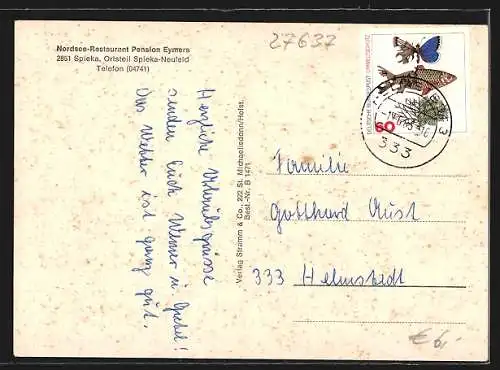 Nordsee-Restaurant Pension Eymers
2851 Spieka, Ortsteil Spieka-Neufeld
Telefon (04741)
27637
Herzliche Urlaubsgrüsse
senden Euch Werner u. Gretel!
Das Wetter ist ganz gut.
Verlag Stramm & Co., 222 St. Michaelisdonn/Holst.
Best.-Nr. B 1471
DEUTSCHE BUNDESPOST UMWELTSCHUTZ
60
3
333
Familie
Gotthard Aust
333 Helmstedt
€ 6,-